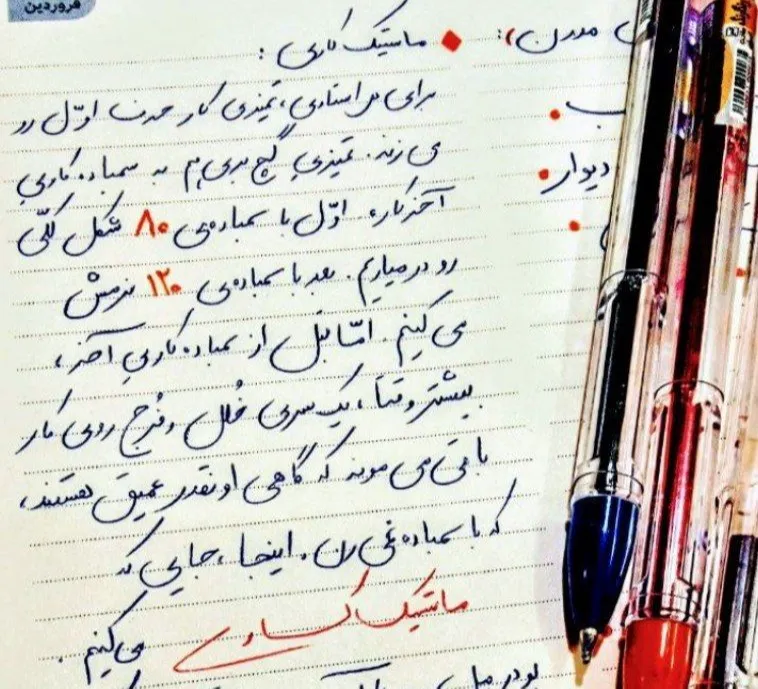 فروردین
مدرن):
دیوار
ماستیک کاری :
برای هر استادی، تمیزی کار حرف اوّل رو
می زنه. تمیزیِ گچ بری هم به سمباده کاریِ
آخرکاره. اوّل با سمباده‌ی ۸۰ شکل کلّی
رو درمیاریم. بعد با سمباده‌ی ۱۲۰ نرمش
می کنیم. امّا قبل از سمباده کاریِ آخر،
بیشتر وقتا، یک سری خُلل و فُرج روی کار
باقی می مونه که گاهی اونقدر عمیق هستند،
که با سمباده نمی رن. اینجا، جایی که
ماستیک می کنیم.